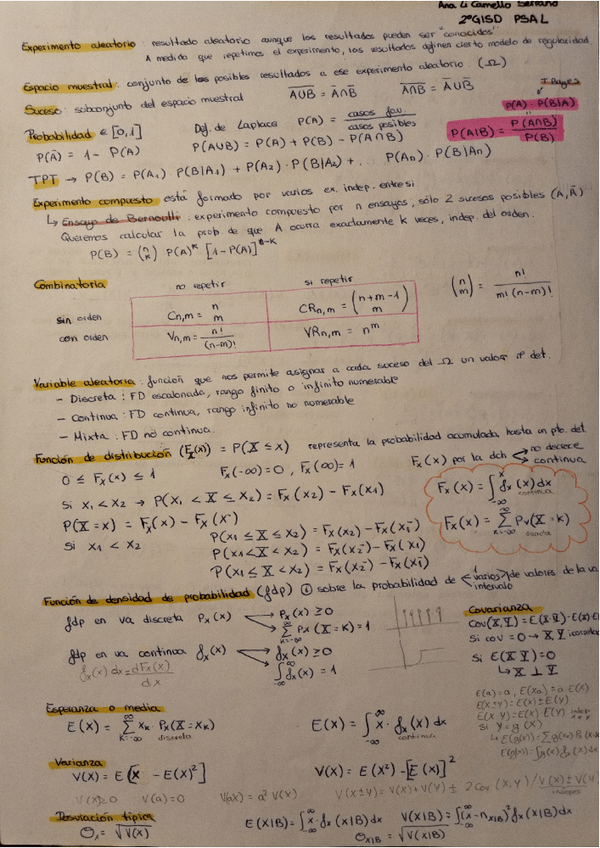 Ana Li Camello Serrano
2º GISD PSAL
Experimento aleatorio: resultado aleatorio aunque los resultados pueden ser "conocidos"
A medida que repetimos el experimento, los resultados definen cierto modelo de regularidad
Espacio muestral: conjunto de los posibles resultados a ese experimento aleatorio (Ω)
Suceso: subconjunto del espacio muestral A̅U̅B̅ = A̅∩B̅ A̅∩B̅ = A̅UB̅
T. Bayes
P(A)·P(B|A)
Probabilidad ∈ [0,1] Def. de Laplace P(A) = casos fav / casos posibles
P(A|B) = P(A∩B) / P(B)
P(Ā) = 1 - P(A) P(AUB) = P(A) + P(B) - P(A∩B)
TPT → P(B) = P(A₁) P(B|A₁) + P(A₂)·P(B|A₂) + .. P(An)·P(B|An)
Experimento compuesto está formado por varios ex. indep. entre si
↳ Ensayo de Bernoulli: experimento compuesto por n ensayos, sólo 2 sucesos posibles (A, Ā)
Queremos calcular la prob de que A ocurra exactamente k veces, indep. del orden.
P(B) = (n k) P(A)^k [1-P(A)]^n-k
Combinatoria no repetir si repetir (n m) = n! / m!(n-m)!
sin orden Cn,m = n m CRn,m = (n+m-1 m)
con orden Vn,m = n! / (n-m)! VRn,m = n^m
Variable aleatoria: función que nos permite asignar a cada suceso del Ω un valor nº det.
- Discreta: FD escalonada, rango finito o infinito numerable
- Continua: FD continua, rango infinito no numerable
- Mixta: FD no continua.
Función de distribución (Fx(x)) = P(X ≤ x) representa la probabilidad acumulada hasta un pto. det.
0 ≤ Fx(x) ≤ 1 Fx(-∞) = 0, Fx(∞) = 1 Fx(x) por la dch no decrece continua
Si x₁ < x₂ → P(x₁ < X ≤ x₂) = Fx(x₂) - Fx(x₁)
Fx(x) = ∫-∞^x fx(x) dx continua
P(X = x) = Fx(x) - Fx(x⁻)
Si x₁ < x₂ P(x₁ ≤ X ≤ x₂) = Fx(x₂) - Fx(x₁⁻)
Fx(x) = Σ k=-∞ ^∞ Px(X = k) discreta
P(x₁ < X < x₂) = Fx(x₂⁻) - Fx(x₁)
P(x₁ ≤ X < x₂) = Fx(x₂⁻) - Fx(x₁⁻)
Función de densidad de probabilidad (fdp) sobre la probabilidad de varios de valores de la va
intervalo
fdp en va discreta Px(x) Px(x) ≥ 0
Σ-∞^∞ Px(X = k) = 1
fdp en va continua fx(x) fx(x) ≥ 0
∫-∞^∞ fx(x) = 1
fx(x) dx = dFx(x) / dx
Covarianza
Cov(X,Y) = E(X·Y) - E(x)·E
Si cov = 0 → X,Y
Si E(X·Y) = 0
↳ X ⊥ Y
E(a) = a, E(xa) = a·E(x)
E(X±Y) = E(x) ± E(Y)
E(X·Y) = E(x)·E(Y) indep
Si Y = g(x)
Esperanza o media
E(X) = Σ k=-∞ ^∞ xk·Px(X = xk) discreta E(X) = ∫-∞^∞ x·fx(x) dx continua
Varianza
V(X) = E[X - E(X)²] V(X) = E(X²) - [E(X)]²
V(X) ≥ 0 V(a) = 0 V(aX) = a² V(X) V(X±Y) = V(X) + V(Y) ± 2Cov(X,Y) / V(X) ± V(Y
Desviación típica
σx = √V(X) E(X|B) = ∫-∞^∞ x·fx(x|B) dx V(X|B) = ∫-∞^∞ (x - ηx|B)² fx(x|B) dx
σx|B = √V(X|B)